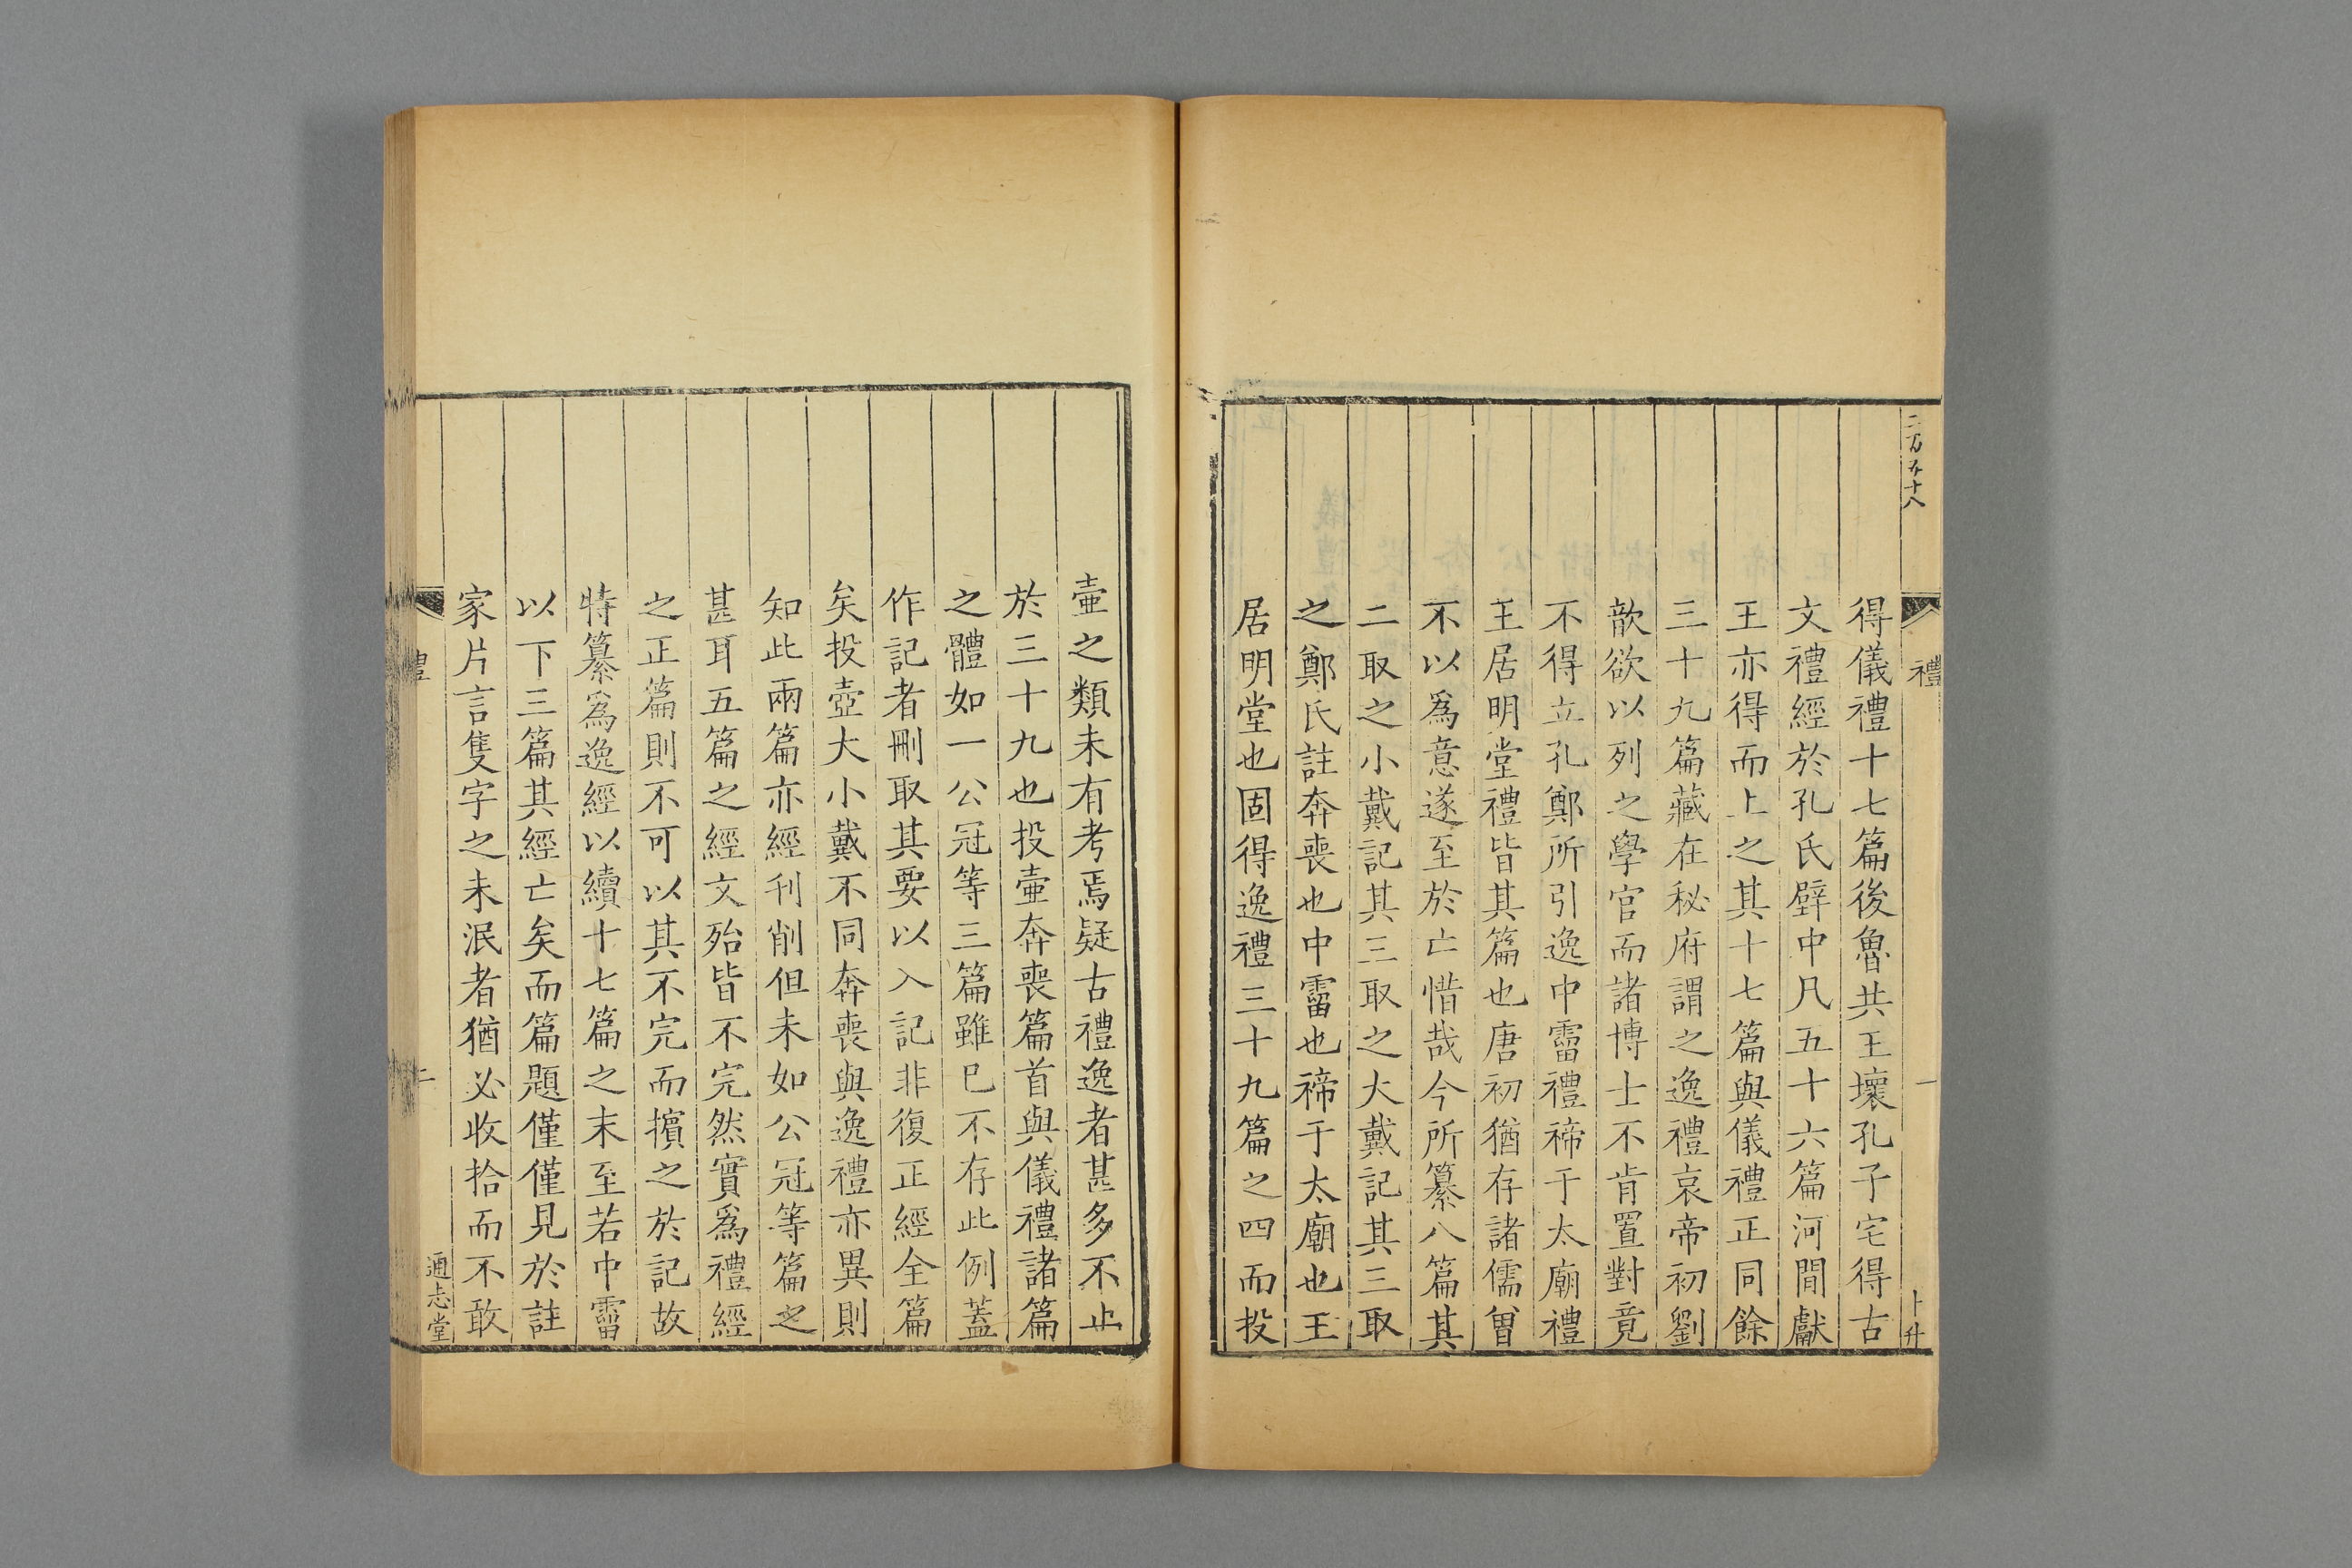 二百五十八
禮
一
卜升
得儀禮十七篇後魯共王壞孔子宅得古
文禮經於孔氏壁中凡五十六篇河間獻
王亦得而上之其十七篇與儀禮正同餘
三十九篇藏在秘府謂之逸禮哀帝初劉
歆欲以列之學官而諸博士不肯置對竟
不得立孔鄭所引逸中霤禮禘于太廟禮
王居明堂禮皆其篇也唐初猶存諸儒曾
不以爲意遂至於亡惜哉今所纂八篇其
二取之小戴記其三取之大戴記其三取
之鄭氏註奔喪也中霤也禘于太廟也王
居明堂也固得逸禮三十九篇之四而投
壷之類未有考焉疑古禮逸者甚多不止
於三十九也投壷奔喪篇首與儀禮諸篇
之體如一公冠等三篇雖已不存此例蓋
作記者刪取其要以入記非復正經全篇
矣投壺大小戴不同奔喪與逸禮亦異則
知此兩篇亦經刊削但未如公冠等篇之
甚耳五篇之經文殆皆不完然實爲禮經
之正篇則不可以其不完而擯之於記故
特纂爲逸經以續十七篇之末至若中霤
以下三篇其經亡矣而篇題僅僅見於註
家片言隻字之未泯者猶必收拾而不敢
禮
二
通志堂